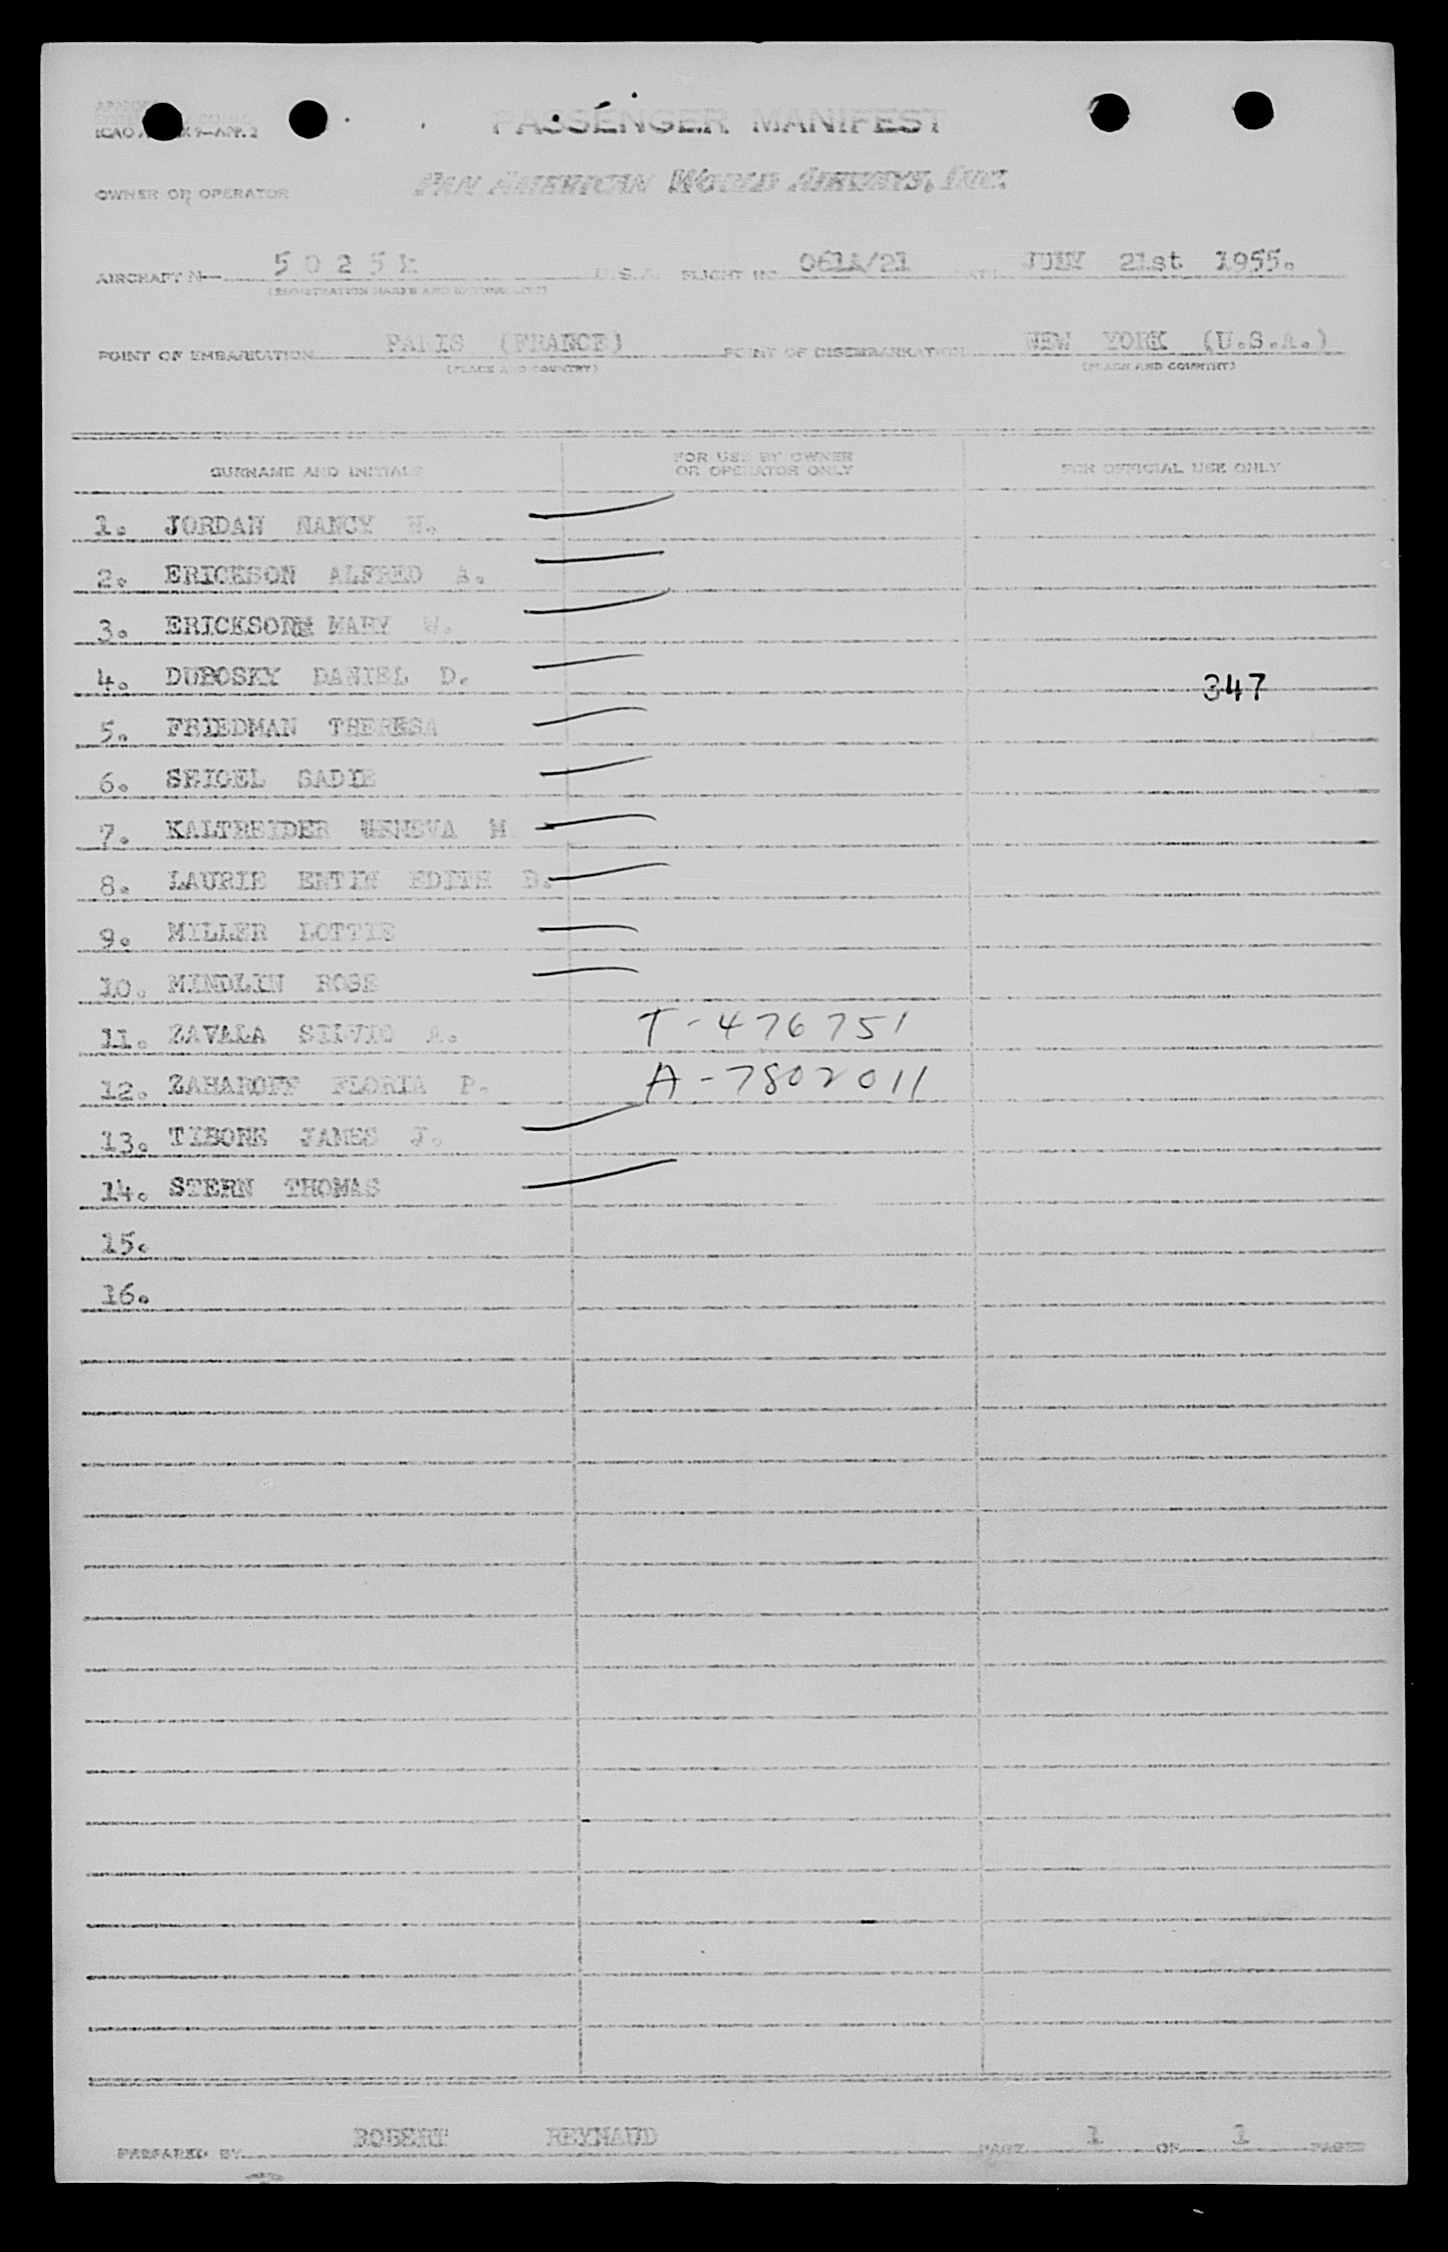 ICAO
PASSENGER MANIFEST
OWNER OR OPERATOR PAN AMERICAN WORLD AIRWAYS, INC.
AIRCRAFT N— 5025K U.S.A. FLIGHT NO 061A/21 DATE JULY 21st 1955.
POINT OF EMBARKATION PARIS (FRANCE) POINT OF DISEMBARKATION NEW YORK (U.S.A.)
(PLACE AND COUNTRY) (PLACE AND COUNTRY)
SURNAME AND INITIALS FOR USE BY OWNER OR OPERATOR ONLY FOR OFFICIAL USE ONLY
1. JORDAN NANCY
2. ERICKSON ALFRED A.
3. ERICKSON MARY W.
4. DUBOSKY DANIEL D. 347
5. FRIEDMAN THERESA
6. SEIGEL SADIE
7. KALTREIDER GENEVA M
8. LAURIE ENTIN EDITH
9. MILLER LOTTIE
10. MINDLIN ROSE
11. ZAVALA SILVIO A. T-476751
12. ZAHAROFF FLORIA P. A-7802011
13. JAMES J.
14. STERN THOMAS
15.
16.
PREPARED BY ROBERT REYNAUD PAGE 1 OF 1 PAGES